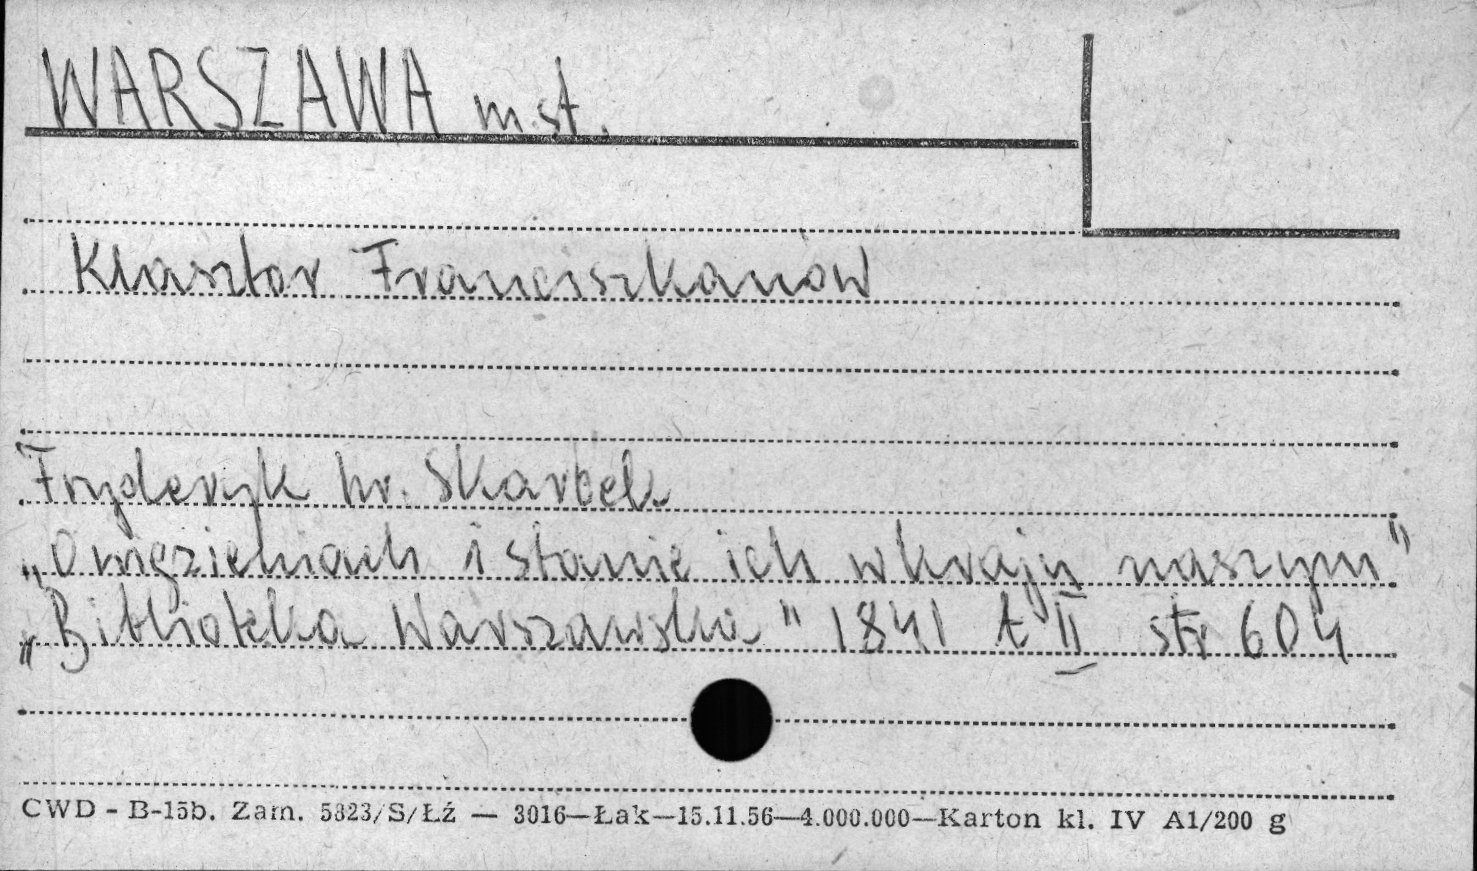 WARSZAWA m.st.
Klasztor Franciszkanów
Fryderyk hr. Skarbek
„O więzieniach i stanie ich w kraju naszym"
„Biblioteka Warszawska" 1841 t II str 604
CWD - B-15b. Zam. 5323/S/Łź — 3016—Łak—15.11.56—4.000.000—Karton kl. IV A1/200 g